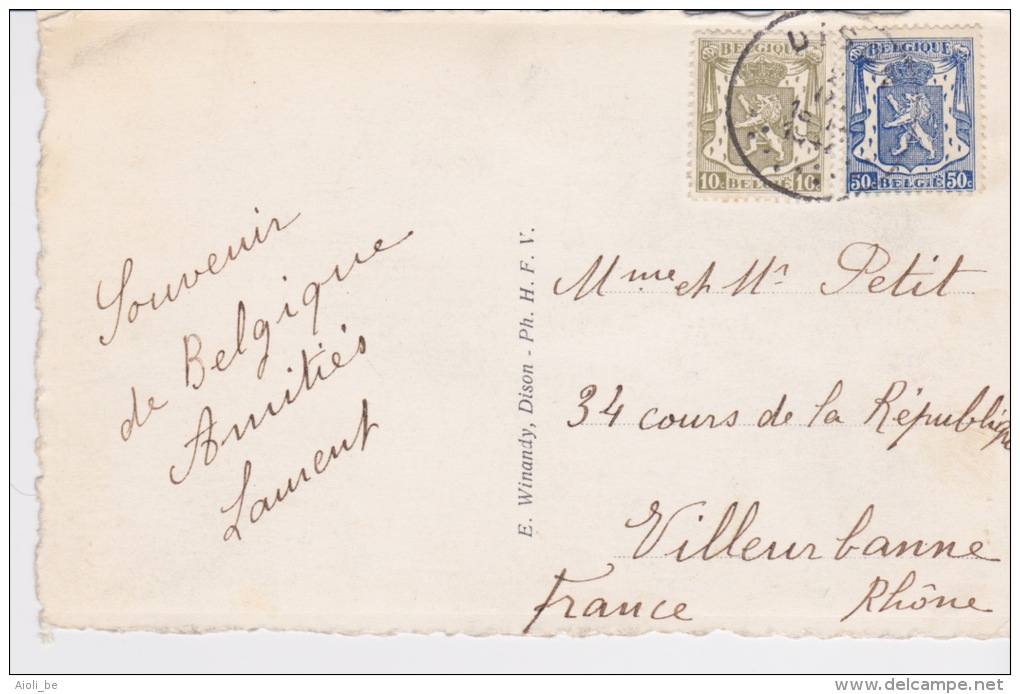 BELGIQUE
10c BELGIË 10c
BELGIQUE
50c BELGIË 50c
Souvenir
de Belgique
Amitiés
Laurent
E. Winandy, Dison - Ph. H. F. V.
Mme et Mr Petit
34 cours de la République
Villeurbanne
France Rhône
Aioli_be
www.delcampe.net